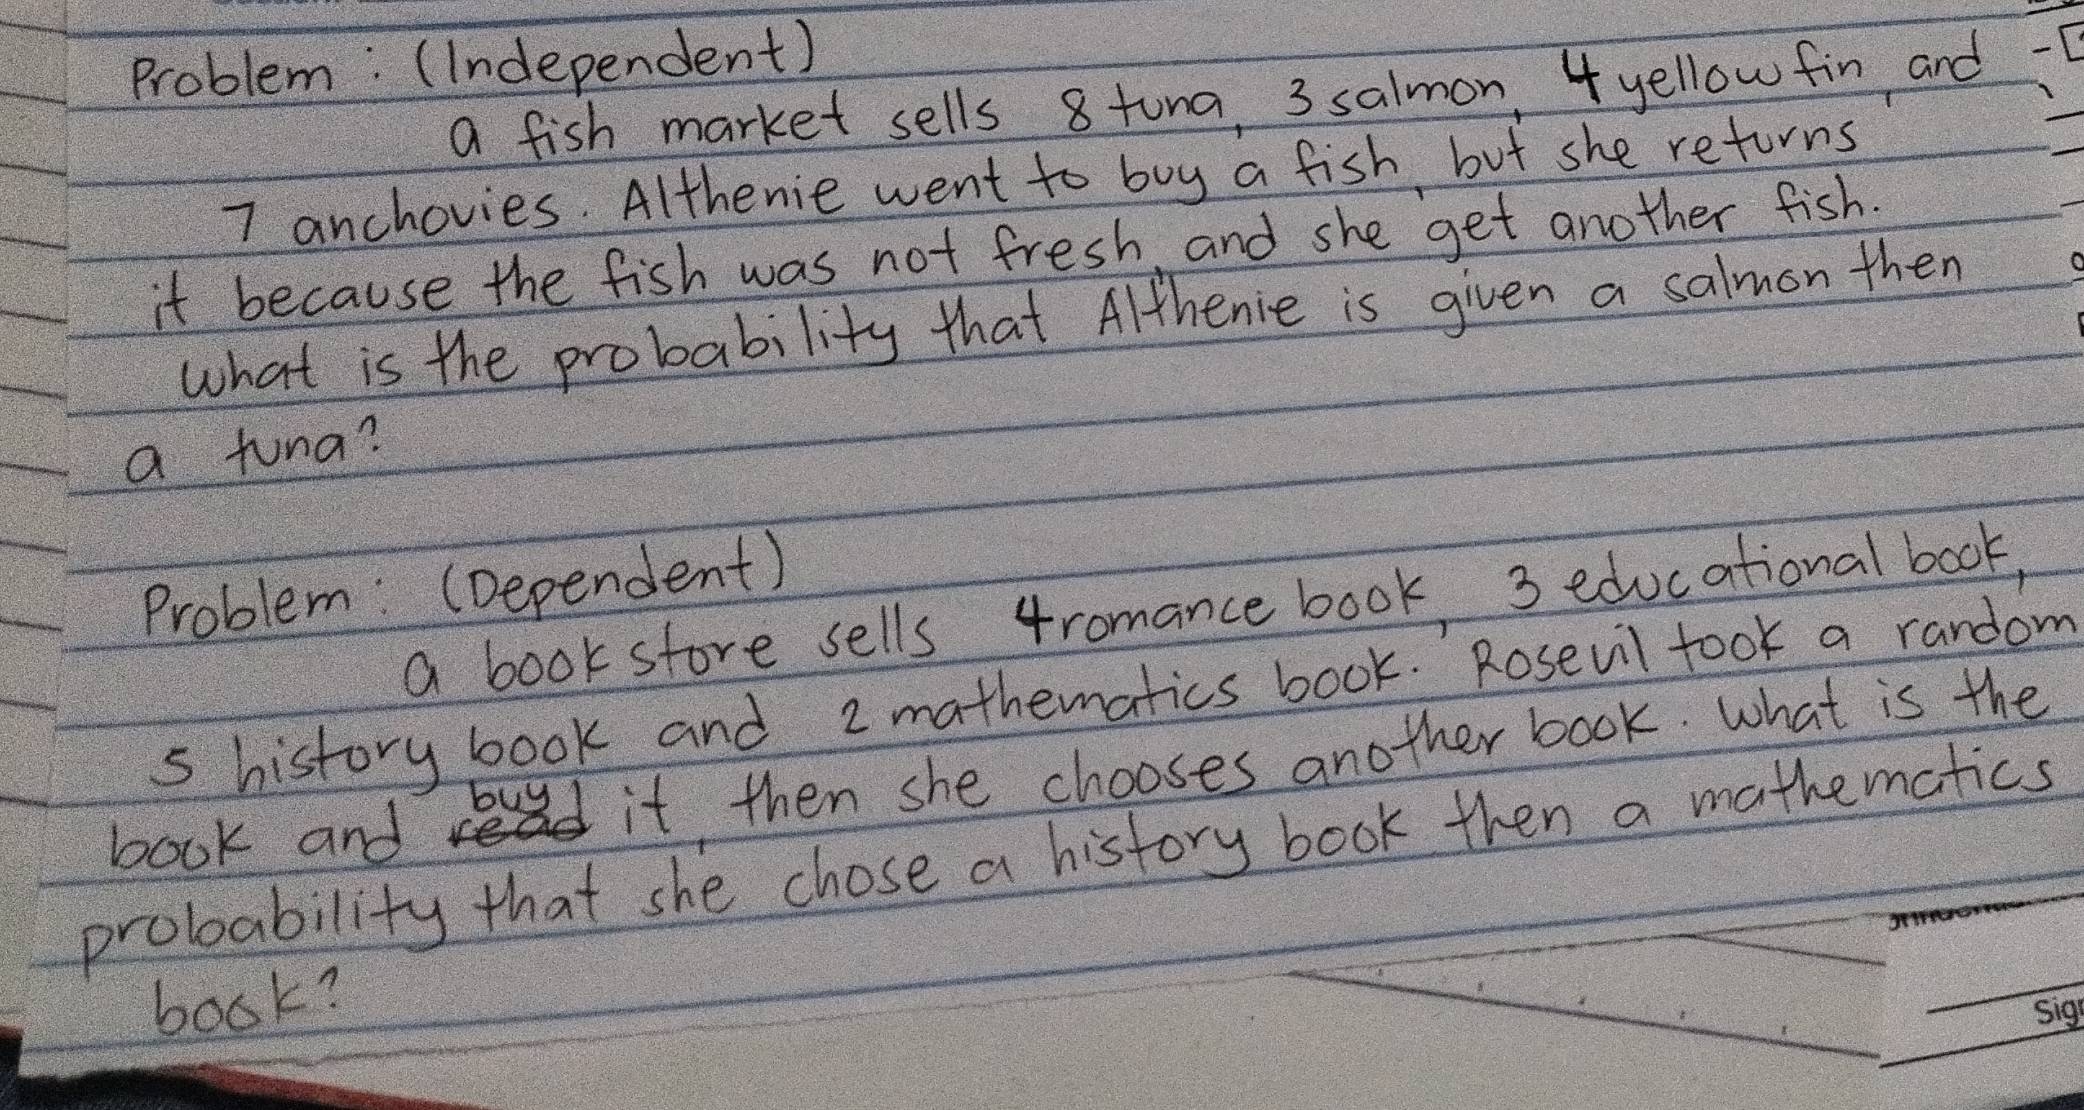 Problem: (Independent)
a fish market sells 8 tuna, 3 salmon, 4 yellow fin, and
7 anchovies. Althenie went to buy a fish, but she returns
it because the fish was not fresh, and she get another fish.
What is the probability that Althenie is given a salmon then
a tuna?
Problem: (Dependent)
a book store sells 4 romance book, 3 educational book,
5 history book and 2 mathematics book. Rosevil took a random
book and buy it, then she chooses another book. What is the
probability that she chose a history book then a mathematics
book?
Sig